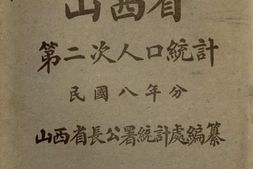 山西省
第二次人口統計
民國八年分
山西省長公署統計處編纂